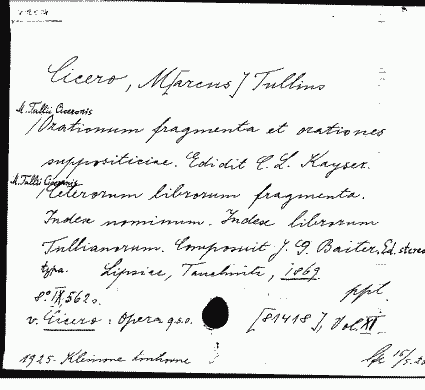 Cicero, M[arcus] Tullius
M. Tullii Ciceronis
/Orationum fragmenta et orationes
suppositiciae. Edidit C. L. Kayser.
M. Tullii Ciceronis
/Ceterorum librorum fragmenta.
Index nominum. Index librorum
Tullianorum. Composuit J. G. Baiter, Ed. stereo
typa. Lipsiae, Tauchnitz, 1869
ppl.
8° IX, 562 s.
v. Cicero: Opera q.s.o. [81418], Vol. XI
1925